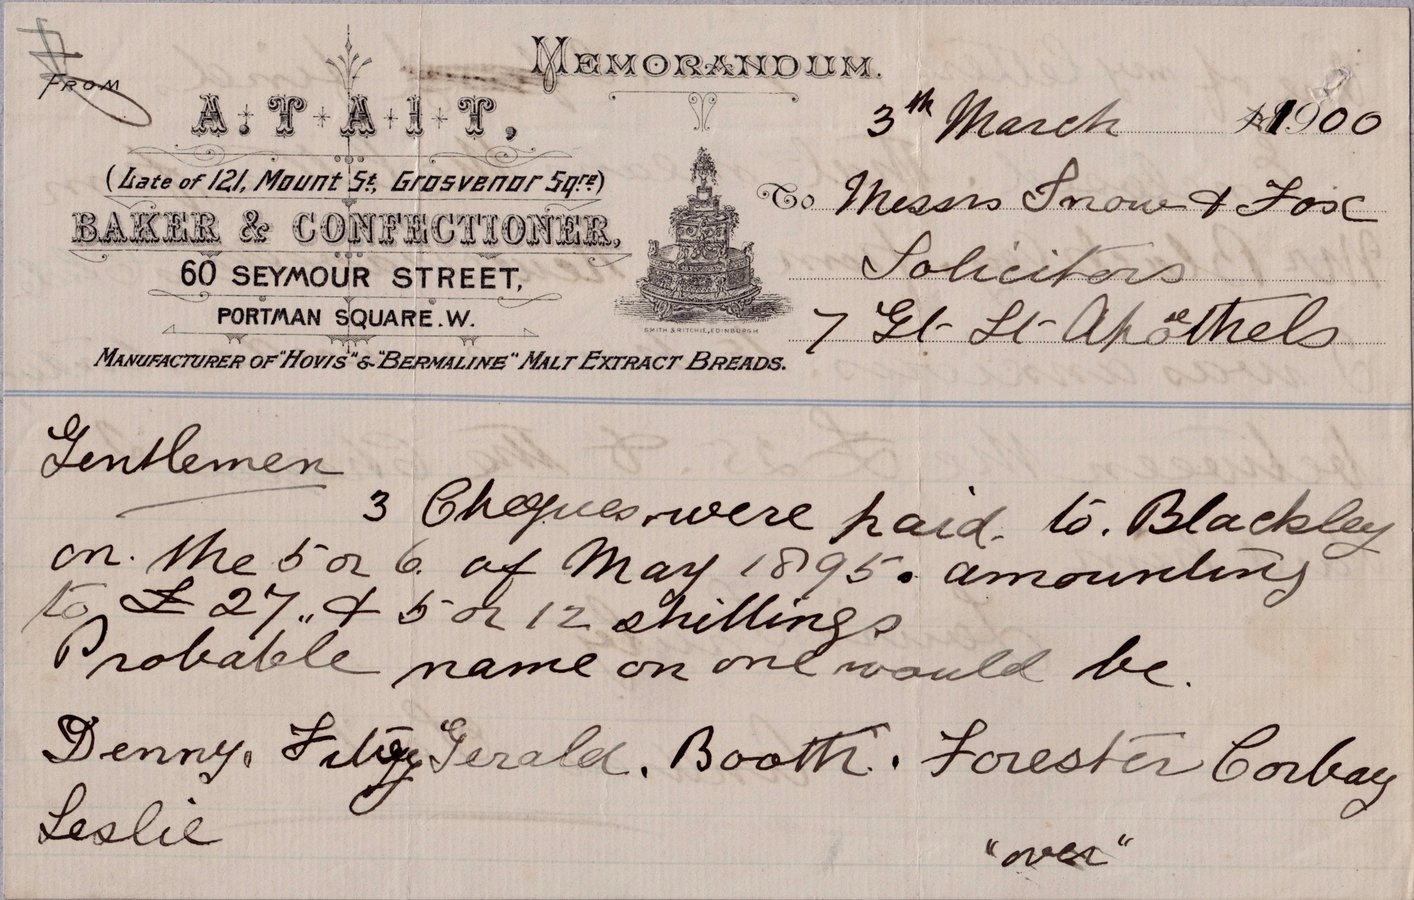 MEMORANDUM.
FROM
A. TAIT,
(Late of 121, Mount St, Grosvenor Sqre)
BAKER & CONFECTIONER,
60 SEYMOUR STREET,
PORTMAN SQUARE. W.
MANUFACTURER OF "HOVIS" & "BERMALINE" MALT EXTRACT BREADS.
SMITH & RITCHIE, EDINBURGH
3th March 1900
To Messrs Snow & Fox
Solicitors
7 Gt St Apothels
Gentlemen
3 Cheques were paid to. Blackley
on. the 5 or 6. of May 1895. amounting
to £27,, & 5 or 12 shillings
Probable name on one would be.
Denny. Fitzgerald. Booth. Forester Corbay
Leslie
"over"